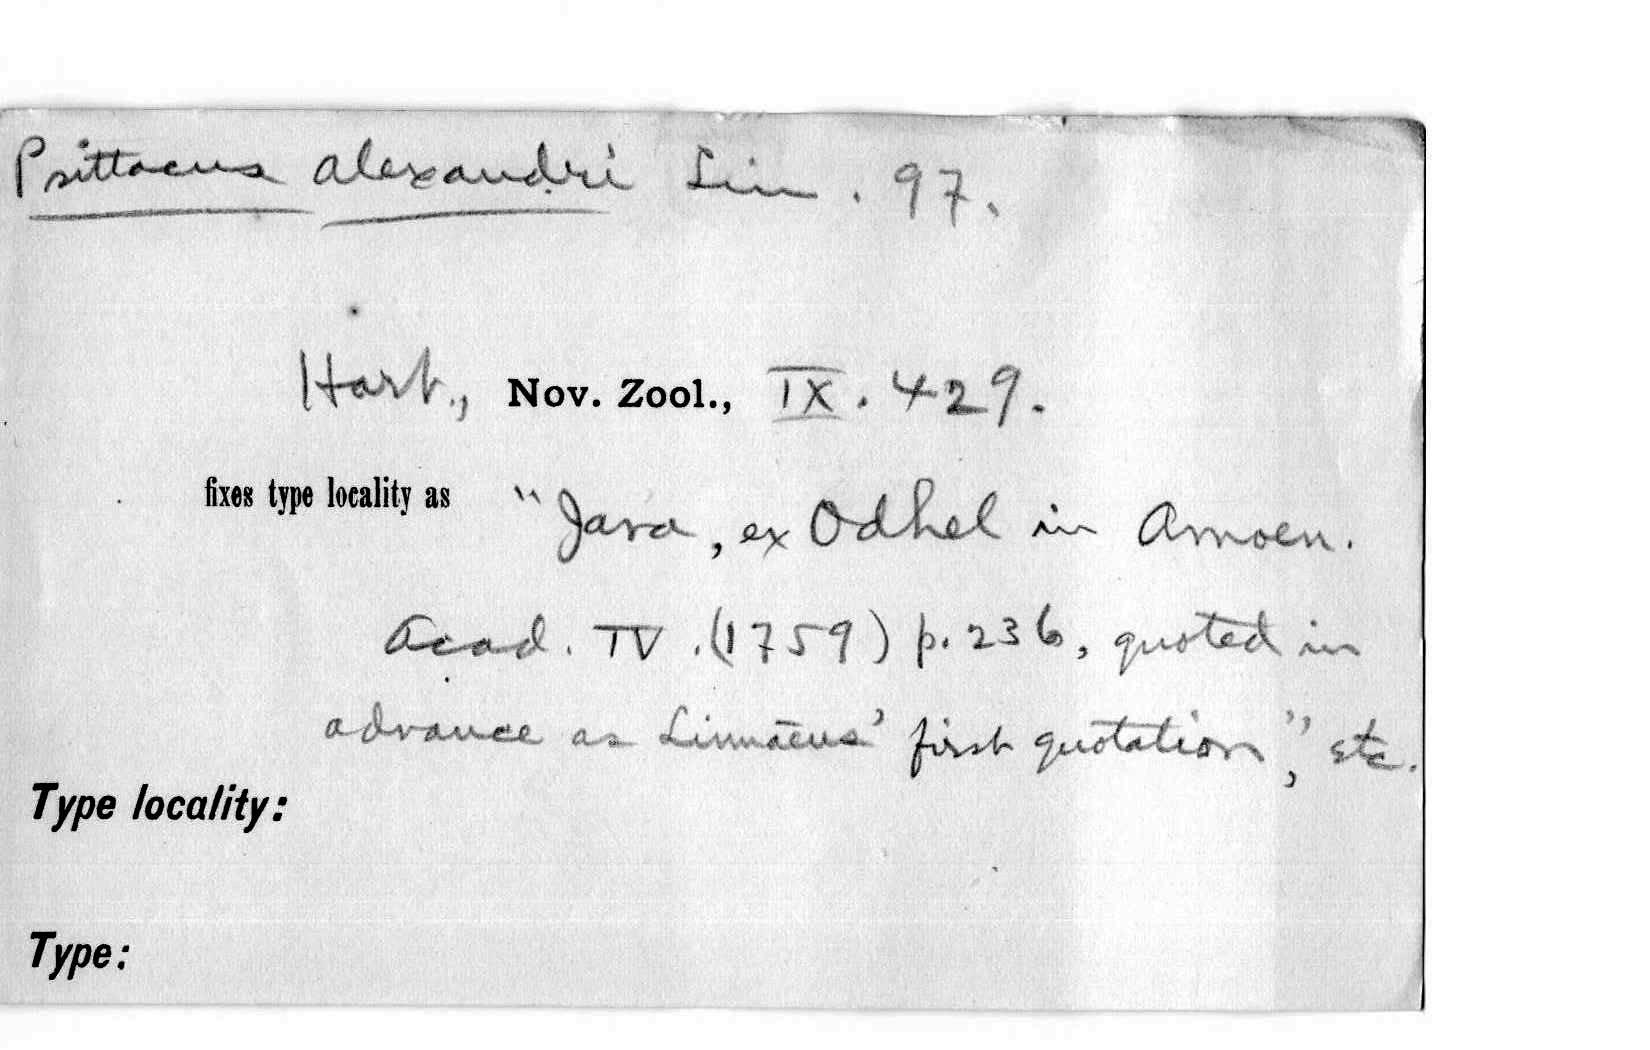 Psittacus alexandri Lin. 97.
Hart., Nov. Zool., IX. 429.
fixes type locality as "Java, ex Odhel in Amoen.
Acad. IV. (1759) p. 236, quoted in
advance as Linnaeus' first quotation", etc.
Type locality:
Type: